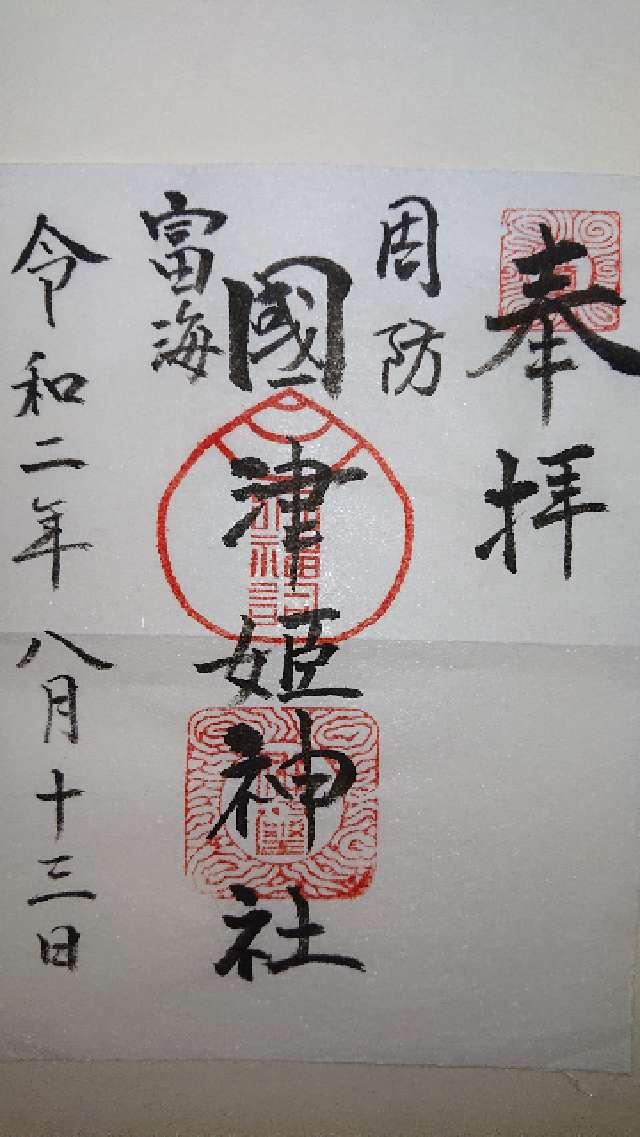 奉拝
周防
國津姫神社
富海
令和二年八月十三日